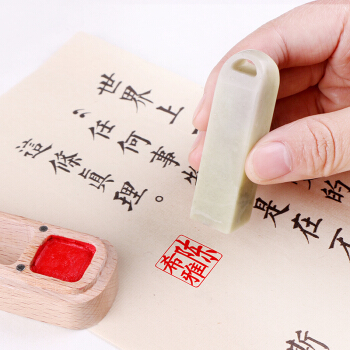 斯
的
是在不
世界上
任何事
這條真理。
陈雅希